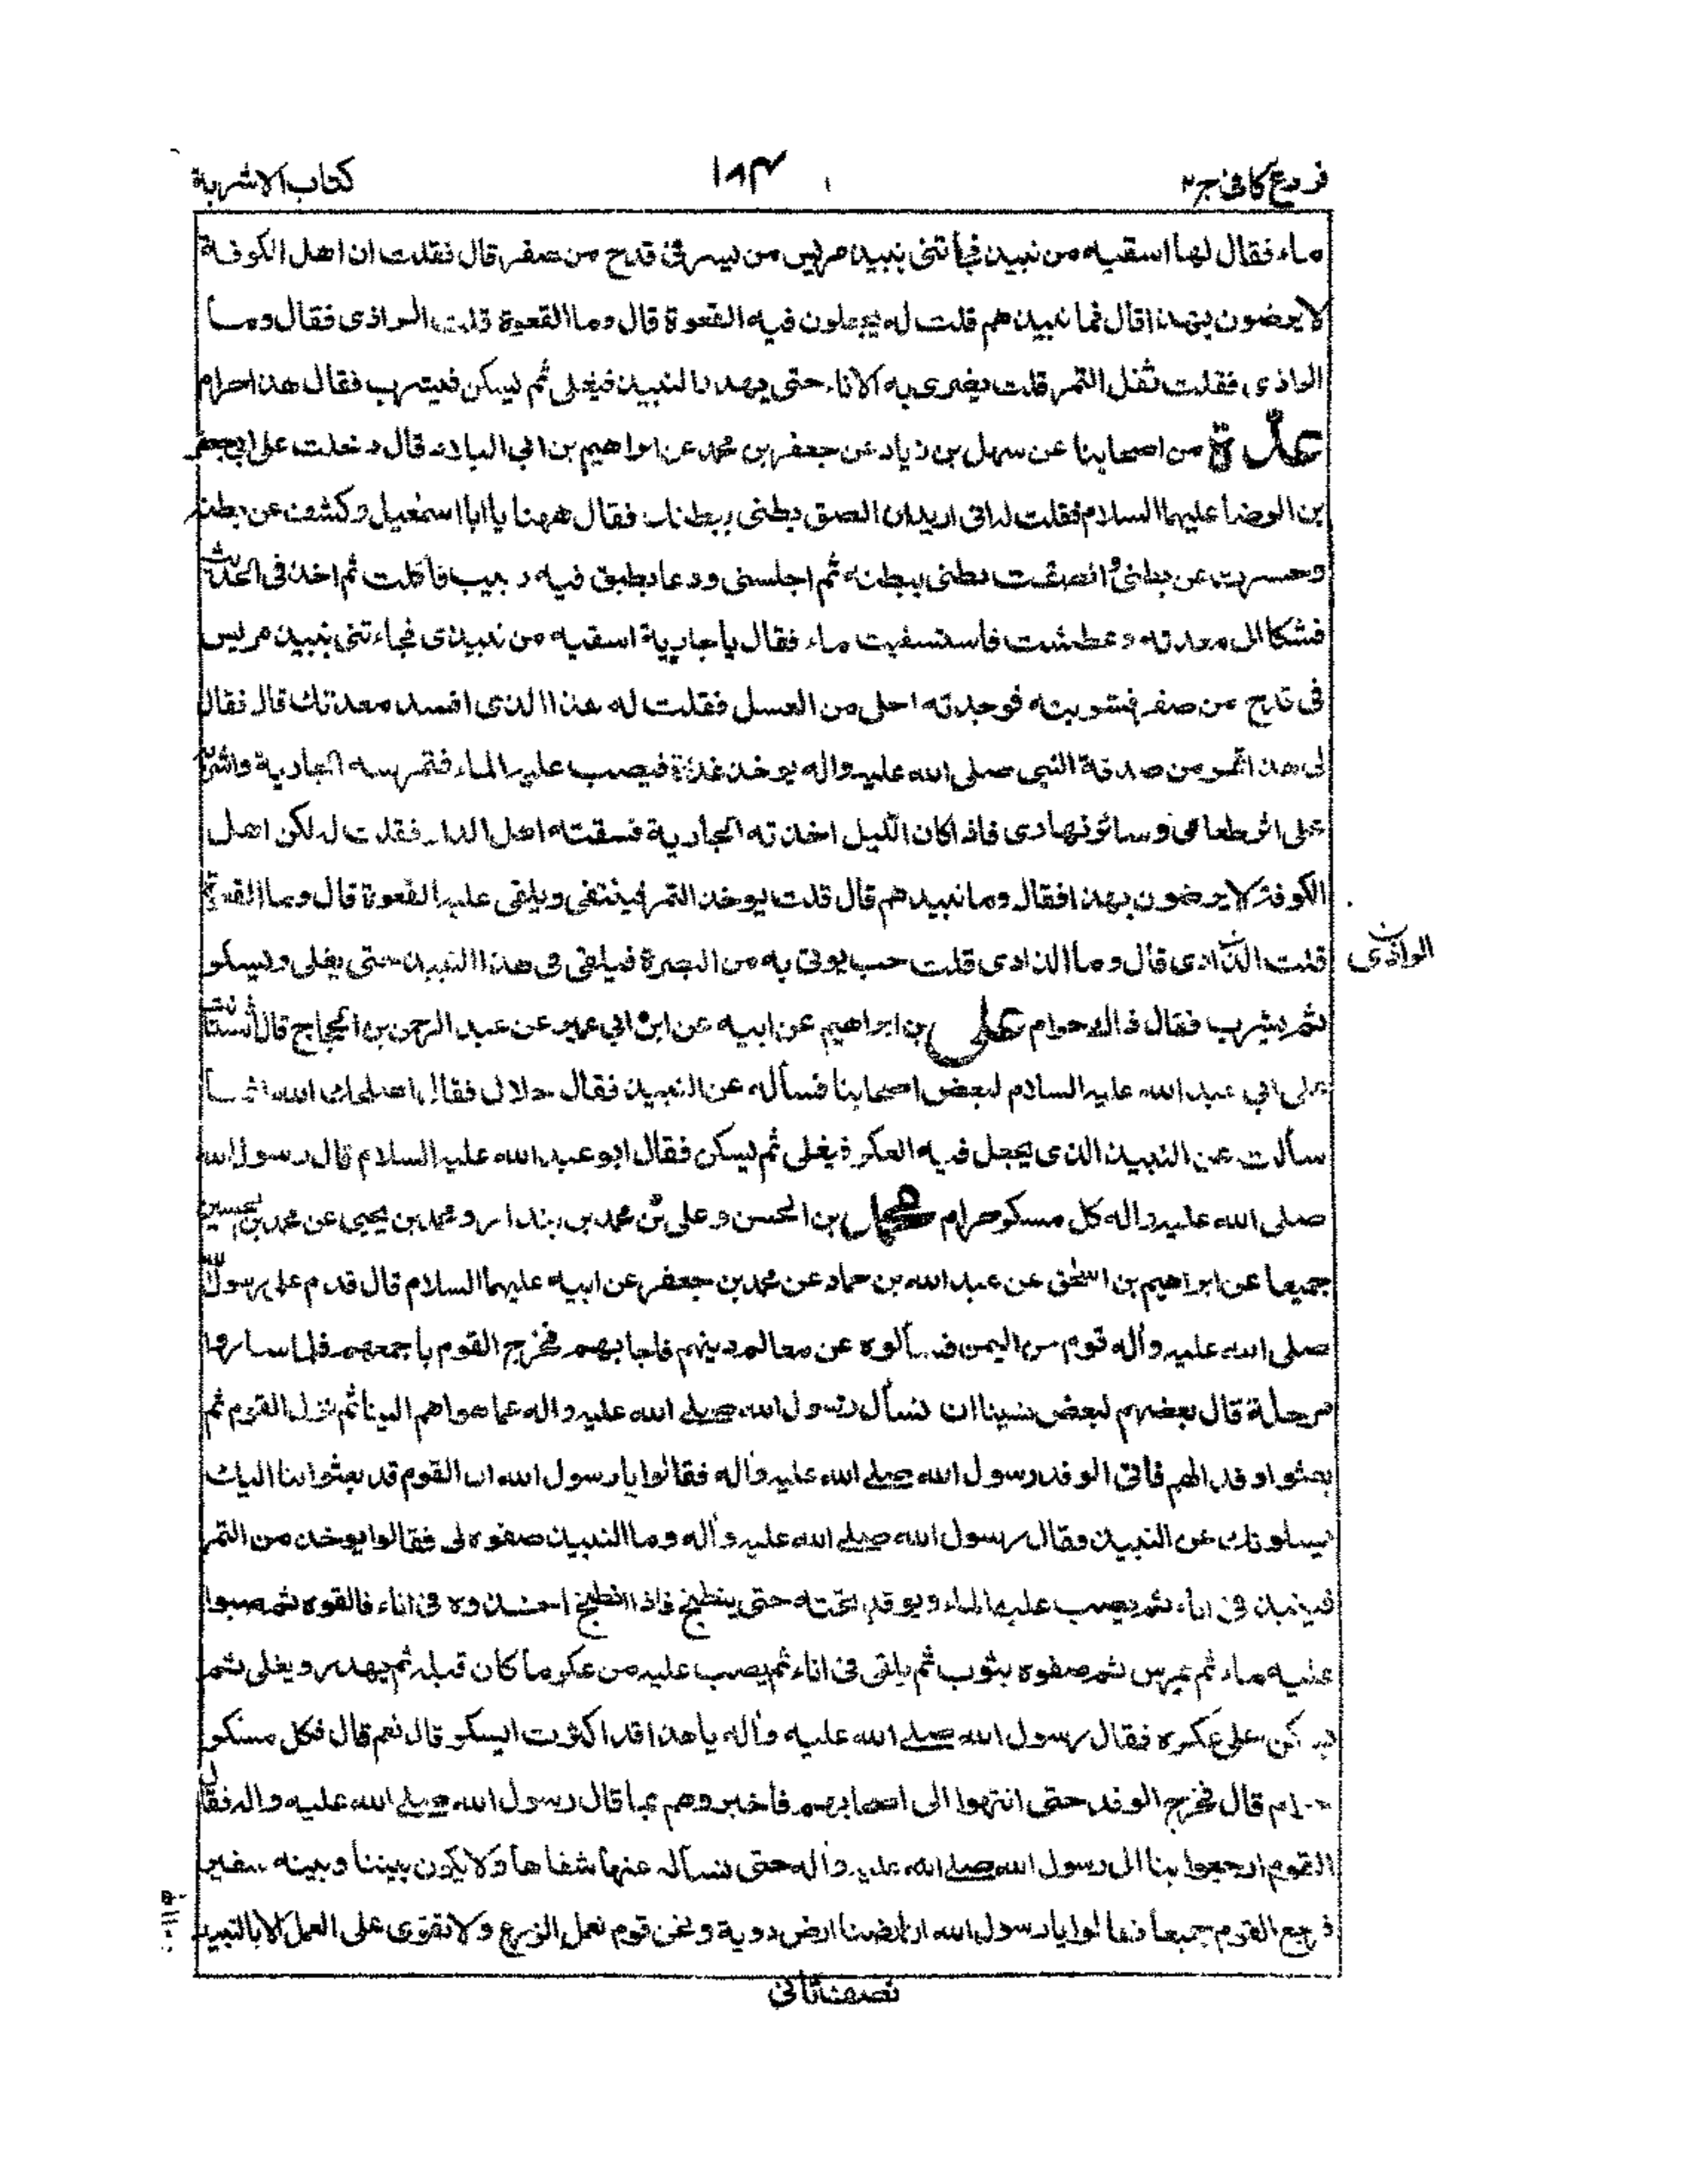 فروع كافى ج٢ ١٨٣ كتاب الاشربة
ماء فقال لها اسقيه من نبيذ فجأتنى بنبيذ مريس من بسر فى قدح من صفر قال فقلت ان اهل الكوفة
لا يرضون بهذا قال فما نبيذهم قلت له يجعلون فيه القعوة قال وما القعوة قلت الداذى فقال وما
الداذى فقلت ثفل التمر قلت يضرى به الاناء حتى يهدر النبيذ فيغلى ثم يسكن فيشرب فقال هذا حرام
عدة من اصحابنا عن سهل بن زياد عن جعفر بن محمد عن ابراهيم بن ابي البلاد قال دخلت على ابي جعفر
بن الرضا عليهما السلام فقلت له انى اريد ان الصق بطنى ببطنك فقال ههنا يا ابا اسمعيل وكشف عن بطنه
وحسرت عن بطنى والصقت بطنى ببطنه ثم اجلسنى ودعا بطبق فيه زبيب فأكلت ثم اخذ فى الحديث
فشكا الى معدته وعطشت فاستسقيت ماء فقال يا جارية اسقيه من نبيذى فجاءتنى بنبيذ مريس
فى قدح من صفر فشربته فوجدته احلى من العسل فقلت له هذا الذى افسد معدتك قال فقال
لى هذا تمر من صدقة النبى صلى الله عليه واله يوخذ غدوة فيصب عليه الماء فتمرسه الجارية واشربه
على اثر طعامى وسائر نهارى فاذا كان الليل اخذته الجارية فسقته اهل الدار فقلت له لكن اهل
الكوفة لا يرضون بهذا فقال وما نبيذهم قال قلت يوخذ التمر فينقى ويلقى عليه القعوة قال وما القعوة
قلت الداذى قال وما الداذى قلت حب يوتى به من البصرة فيلقى فى هذا النبيذ حتى يغلى ويسكر
ثم يشرب فقال ذاك حرام على بن ابراهيم عن ابيه عن ابن ابي عمير عن عبد الرحمن بن الحجاج قال استاذنت
على ابي عبد الله عليه السلام لبعض اصحابنا فسأله عن النبيذ فقال حلال فقال اصلحك الله انما
سألت عن النبيذ الذى يجعل فيه العكر فيغلى ثم يسكن فقال ابو عبد الله عليه السلام قال رسول الله
صلى الله عليه واله كل مسكر حرام محمد بن الحسن وعلى بن محمد بن بندار ومحمد بن يحيى عن محمد بن الحسين
جميعا عن ابراهيم بن اسحق عن عبد الله بن حماد عن محمد بن جعفر عن ابيه عليهما السلام قال قدم على رسول الله
صلى الله عليه وأله قوم من اليمن فسألوه عن معالم دينهم فاجابهم فخرج القوم بأجمعهم فلما ساروا
مرحلة قال بعضهم لبعض نسينا ان نسأل رسول الله صلى الله عليه واله عما هو اهم الينا ثم نزل القوم ثم
بعثوا وفدا لهم فأتى الوفد رسول الله صلى الله عليه وأله فقالوا يا رسول الله ان القوم قد بعثوا بنا اليك
يسلونك عن النبيذ فقال رسول الله صلى الله عليه وأله وما النبيذ صفوه لى فقالوا يوخذ من التمر
فينبذ فى اناء ثم يصب عليه الماء ويوقد تحته حتى ينطبخ فاذا انطبخ اخذوه فى اناء فالقوه ثم صبوا
عليه ماء ثم يمرس ثم صفوه بثوب ثم يلقى فى اناء ثم يصب عليه من عكر ما كان قبله ثم يهدر ويغلى ثم
يسكن على عكره فقال رسول الله صلى الله عليه وأله يا هذا قد اكثرت ايسكر قال نعم قال فكل مسكر
حرام قال فخرج الوفد حتى انتهوا الى اصحابهم فاخبروهم بما قال رسول الله صلى الله عليه واله فقال
القوم ارجعوا بنا الى رسول الله صلى الله عليه وأله حتى نسأله عنها شفاها ولا يكون بيننا وبينه سفير
فرجع القوم جميعا فقالوا يا رسول الله ان ارضنا ارض دوية ونحن قوم نعمل الزرع ولا نقوى على العمل الا بالنبيذ
نصف ثانى